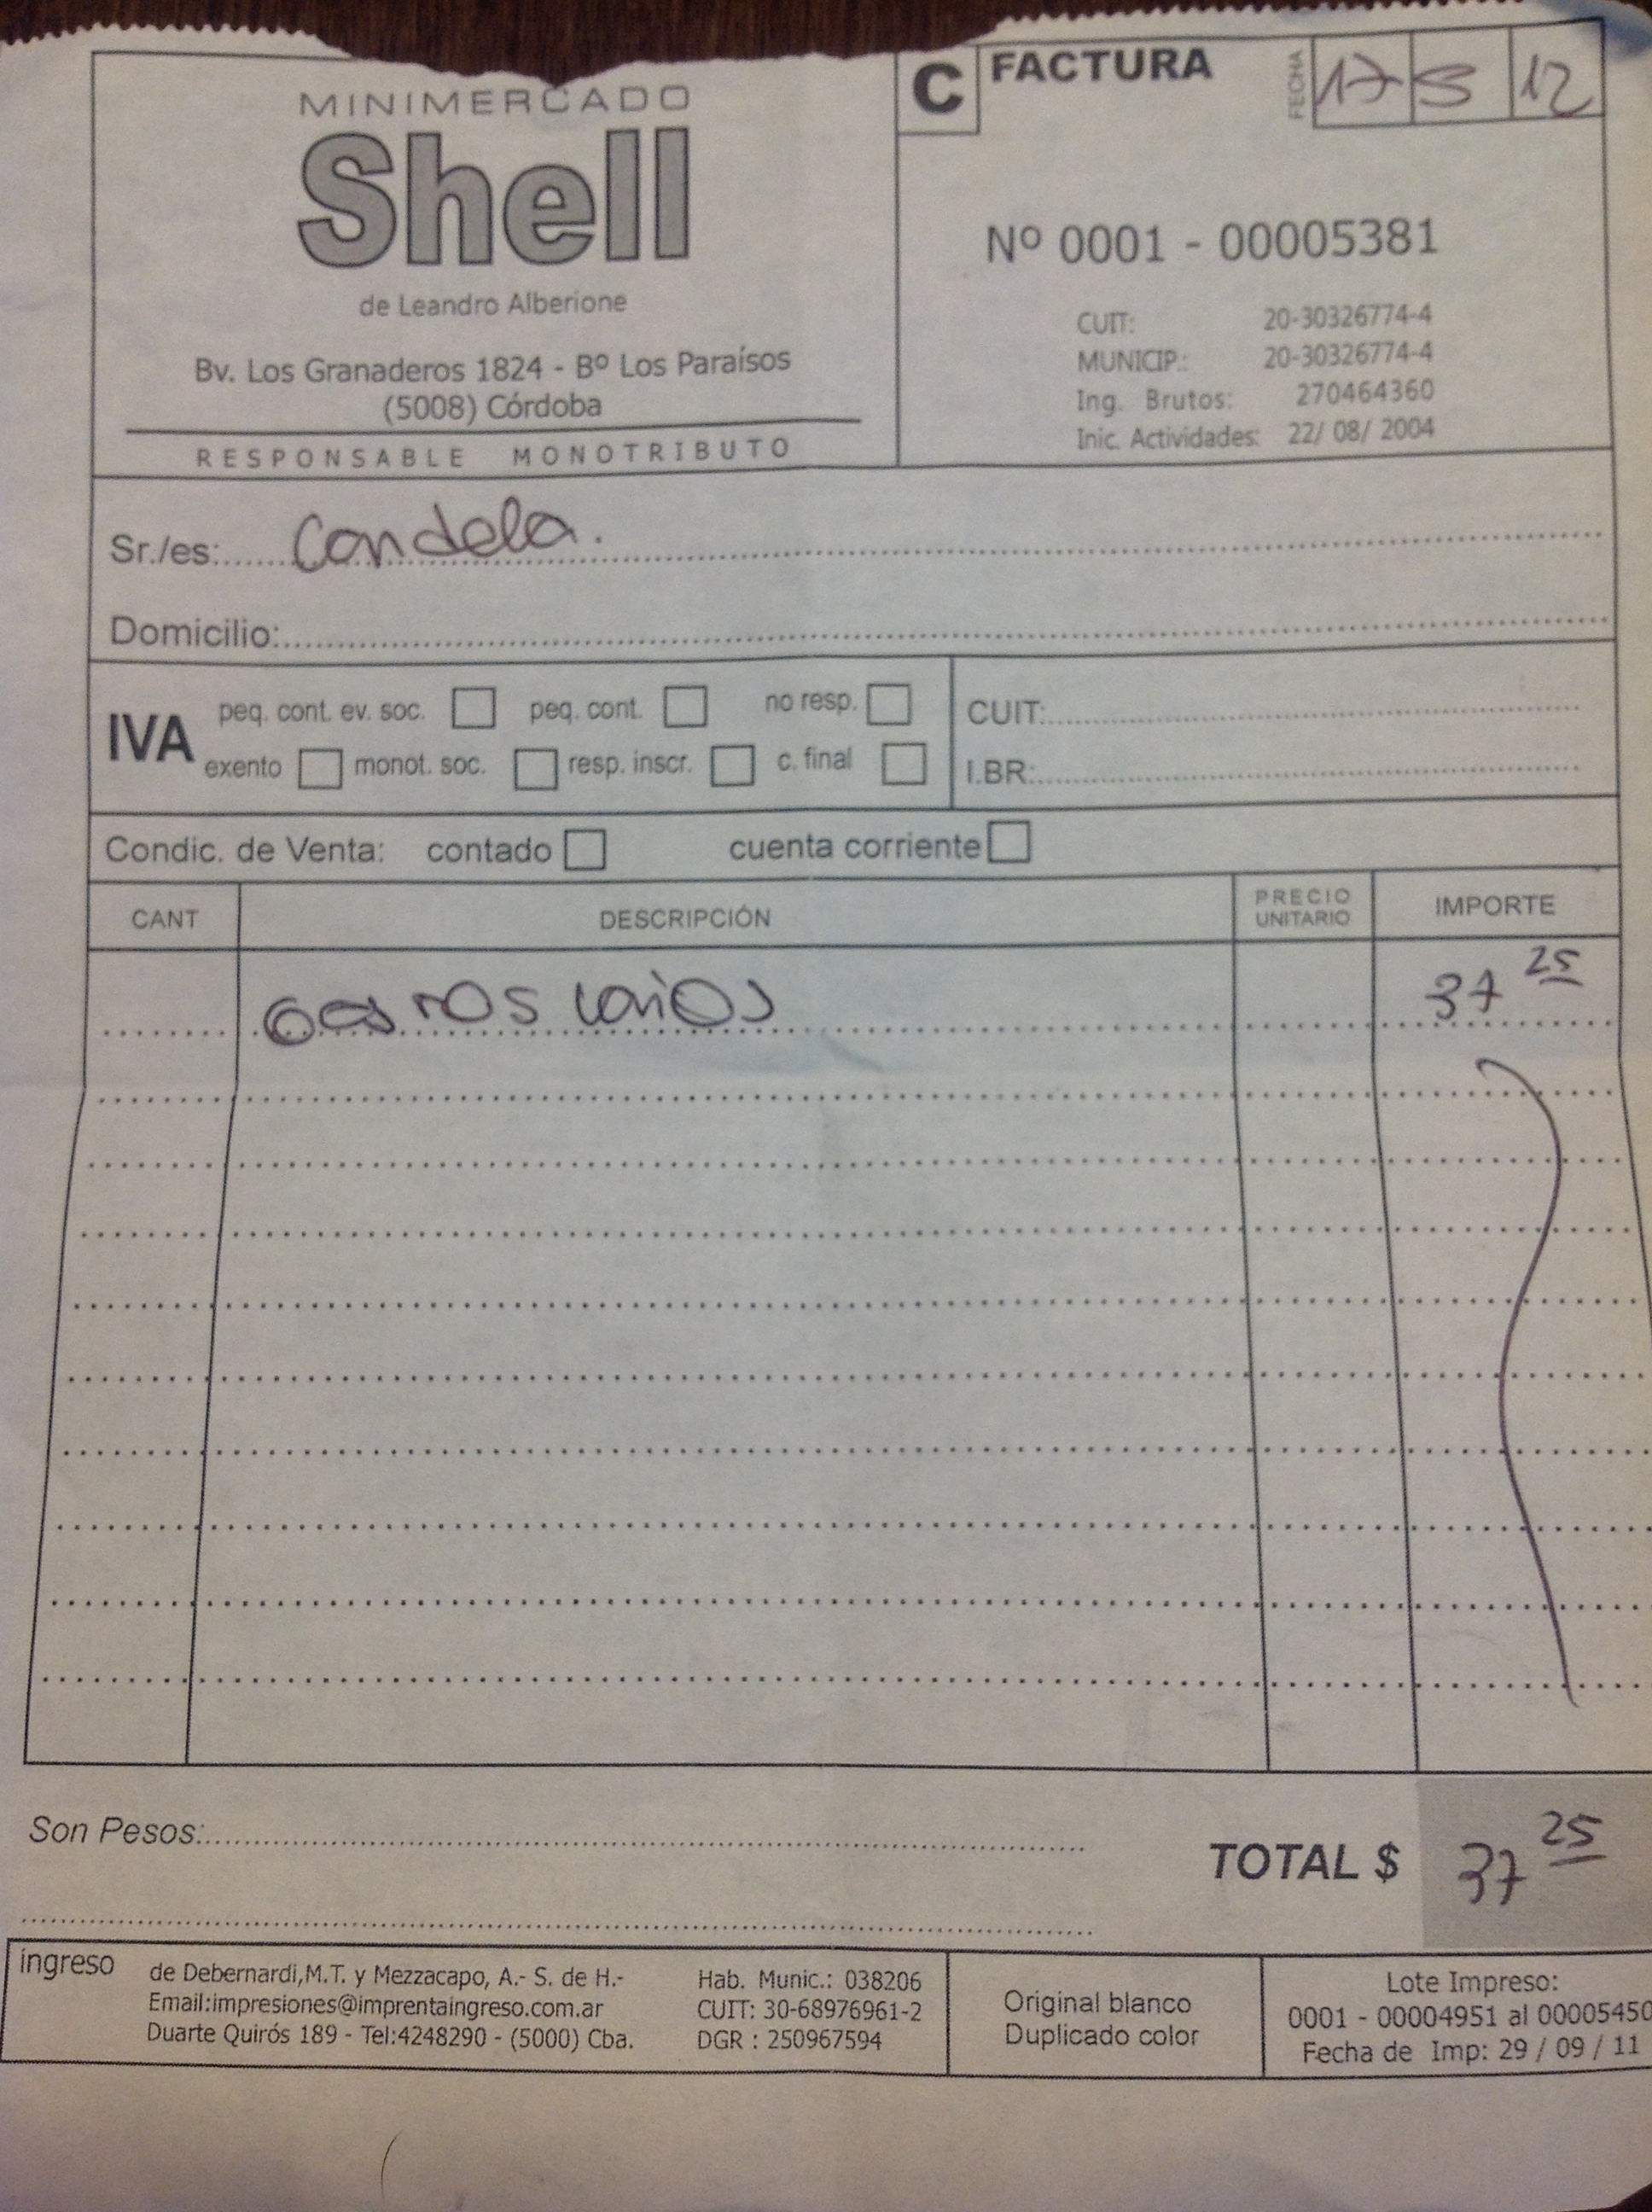 MINIMERCADO
Shell
de Leandro Alberione
Bv. Los Granaderos 1824 - Bº Los Paraísos
(5008) Córdoba
RESPONSABLE MONOTRIBUTO
C FACTURA
FECHA 17 5 12
Nº 0001 - 00005381
CUIT: 20-30326774-4
MUNICIP.: 20-30326774-4
Ing. Brutos: 270464360
Inic. Actividades: 22/ 08/ 2004
Sr./es: Candela.
Domicilio:
IVA peq. cont. ev. soc. peq. cont. no resp.
exento monot. soc. resp. inscr. c. final
CUIT:
I.BR:
Condic. de Venta: contado cuenta corriente
CANT DESCRIPCIÓN PRECIO UNITARIO IMPORTE
37 25
Son Pesos:
TOTAL $ 37 25
ingreso de Debernardi,M.T. y Mezzacapo, A.- S. de H.-
Email:impresiones@imprentaingreso.com.ar
Duarte Quirós 189 - Tel:4248290 - (5000) Cba.
Hab. Munic.: 038206
CUIT: 30-68976961-2
DGR : 250967594
Original blanco
Duplicado color
Lote Impreso:
0001 - 00004951 al 00005450
Fecha de Imp: 29 / 09 / 11